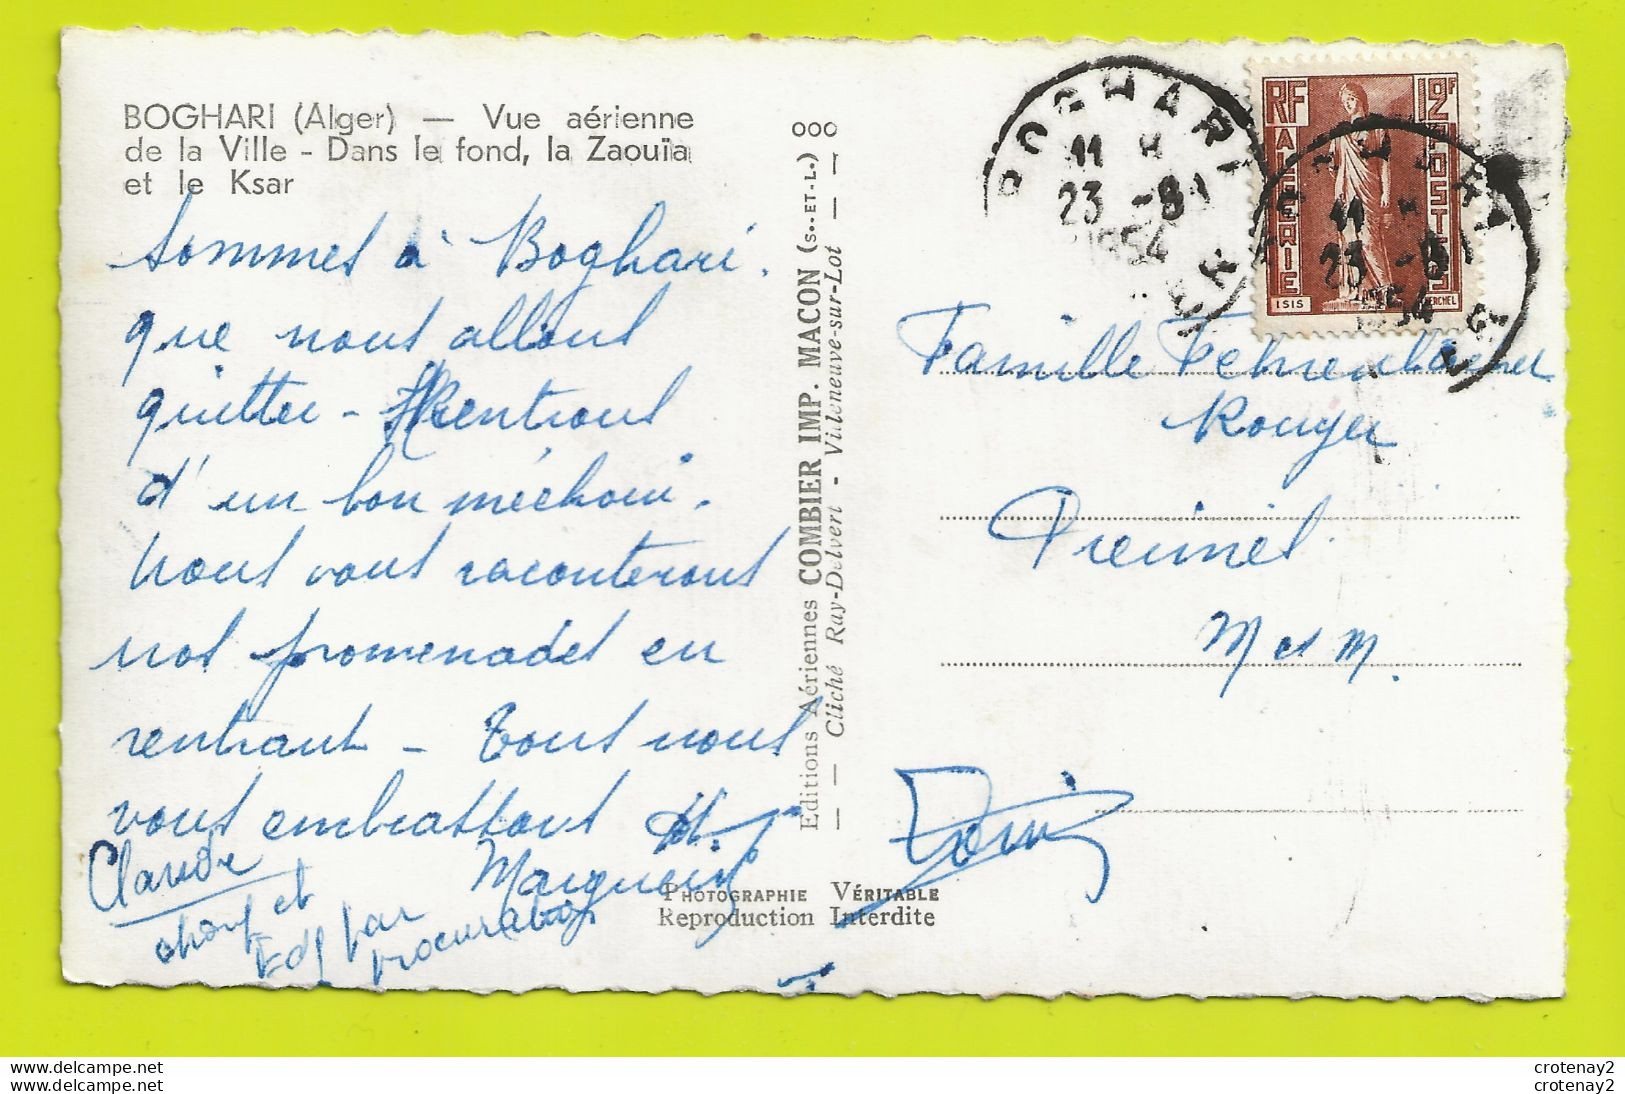 BOGHARI (Alger) — Vue aérienne
de la Ville - Dans le fond, la Zaouïa
et le Ksar
Sommes à Boghari.
que nous allons
quitter - Rentrons
d'un bon méchoui.
Nous vous raconterons
nos promenades en
rentrant - Tous nous
vous embrassons
Claude
et
par
procuration
Editions Aériennes COMBIER IMP. MACON (S.-ET-L.) 000
— Cliché Ray-Delvert - Villeneuve-sur-Lot — —
PHOTOGRAPHIE VÉRITABLE
Reproduction Interdite
BOGHARI
11 H
23 -8
1954
ALGER
RF 12F
ALGERIE
POSTES
ISIS
CHERCHEL
BOGHARI
11 H
23 -8
1954
ALGER
Famille Fehrenbacher
Rouyer
M et M.
crotenay2
crotenay2